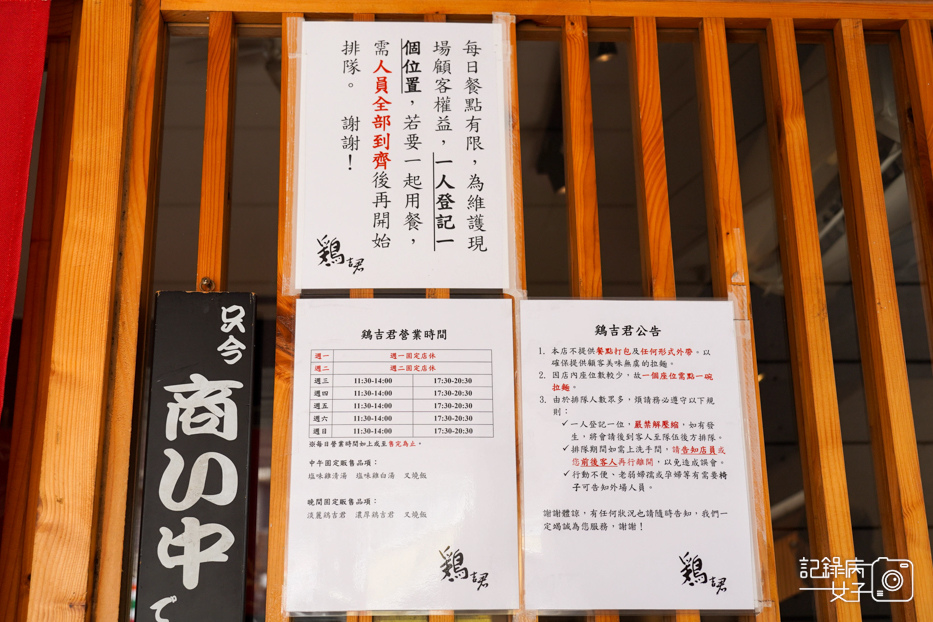 每日餐點有限，為維護現
場顧客權益，一人登記一
個位置，若要一起用餐，
需人員全部到齊後再開始
排隊。 謝謝！
鶏吉君
只今
商い中
て
鶏吉君營業時間
週一 週一固定店休
週二 週二固定店休
週三 11:30-14:00 17:30-20:30
週四 11:30-14:00 17:30-20:30
週五 11:30-14:00 17:30-20:30
週六 11:30-14:00 17:30-20:30
週日 11:30-14:00 17:30-20:30
※每日營業時間如上或至售完為止。
中午固定販售品項：
塩味雞清湯 塩味雞白湯 叉燒飯
晚間固定販售品項：
淡麗鶏吉君 濃厚鶏吉君 叉燒飯
鶏吉君
鶏吉君公告
1. 本店不提供餐點打包及任何形式外帶。以
確保提供顧客美味無虞的拉麵。
2. 因店內座位數較少，故一個座位需點一碗
拉麵。
3. 由於排隊人數眾多，煩請務必遵守以下規
則：
✓一人登記一位，嚴禁解壓縮，如有發
生，將會請後到客人至隊伍後方排隊。
✓排隊期間如需上洗手間，請告知店員或
您前後客人再行離開，以免造成誤會。
✓行動不便、老弱婦孺或孕婦等有需要椅
子可告知外場人員。
謝謝體諒，有任何狀況也請隨時告知，我們一
定竭誠為您服務，謝謝！
鶏吉君
記錄病
女子